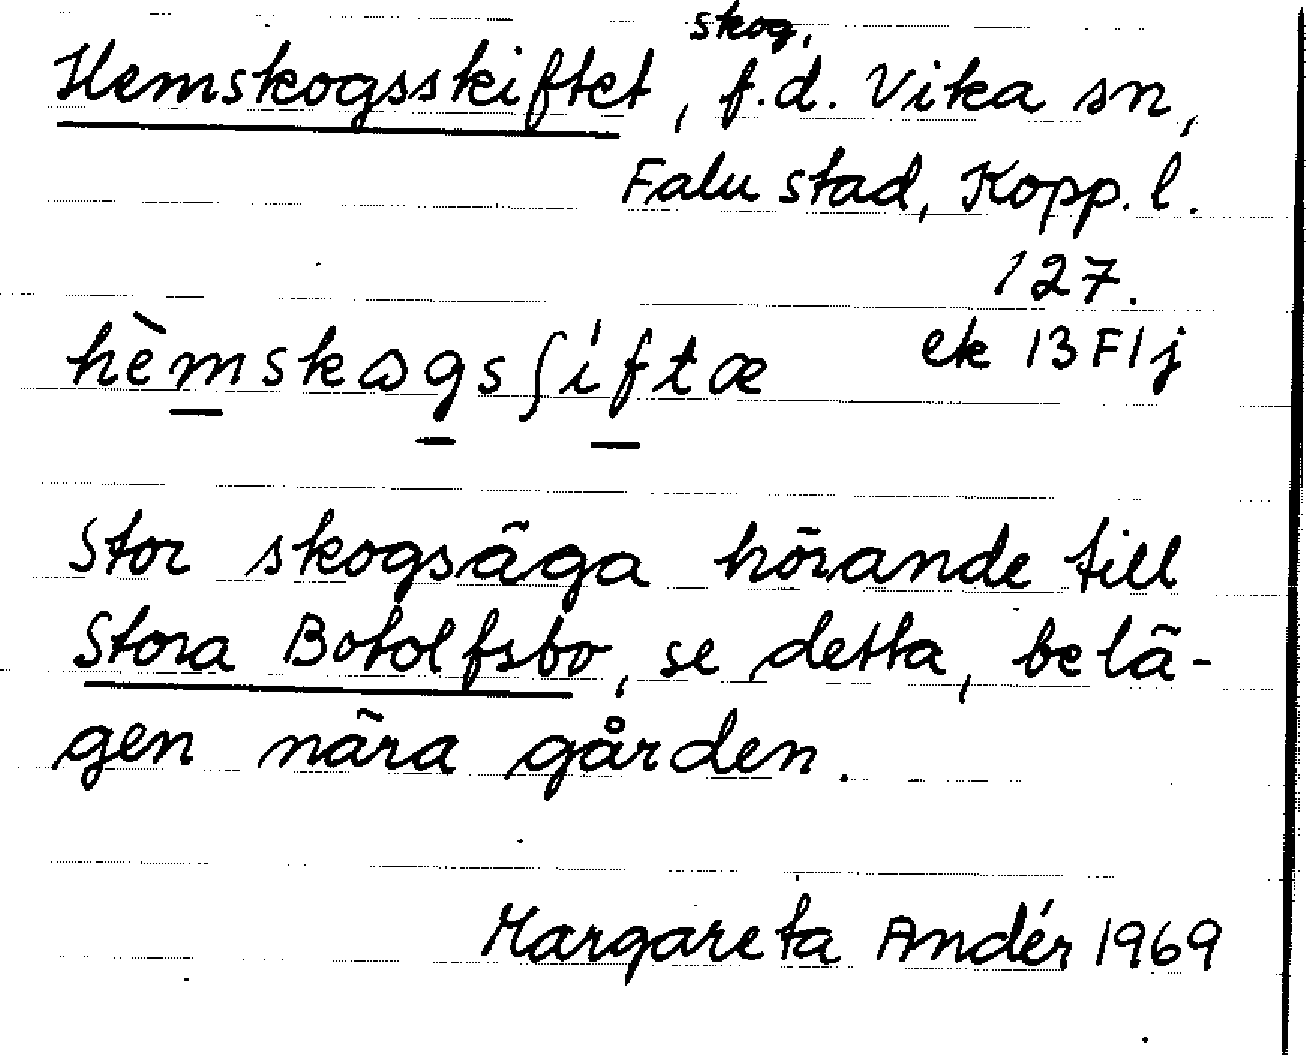 Hemskogsskiftet, skog, f.d. Vika sn,
Falu stad, Kopp. l.
127.
hèmskɷgsʃíftæ ek 13F1j
Stor skogsäga hörande till
Stora Botolfsbo, se detta, belä-
gen nära gården.
Margareta Andér 1969